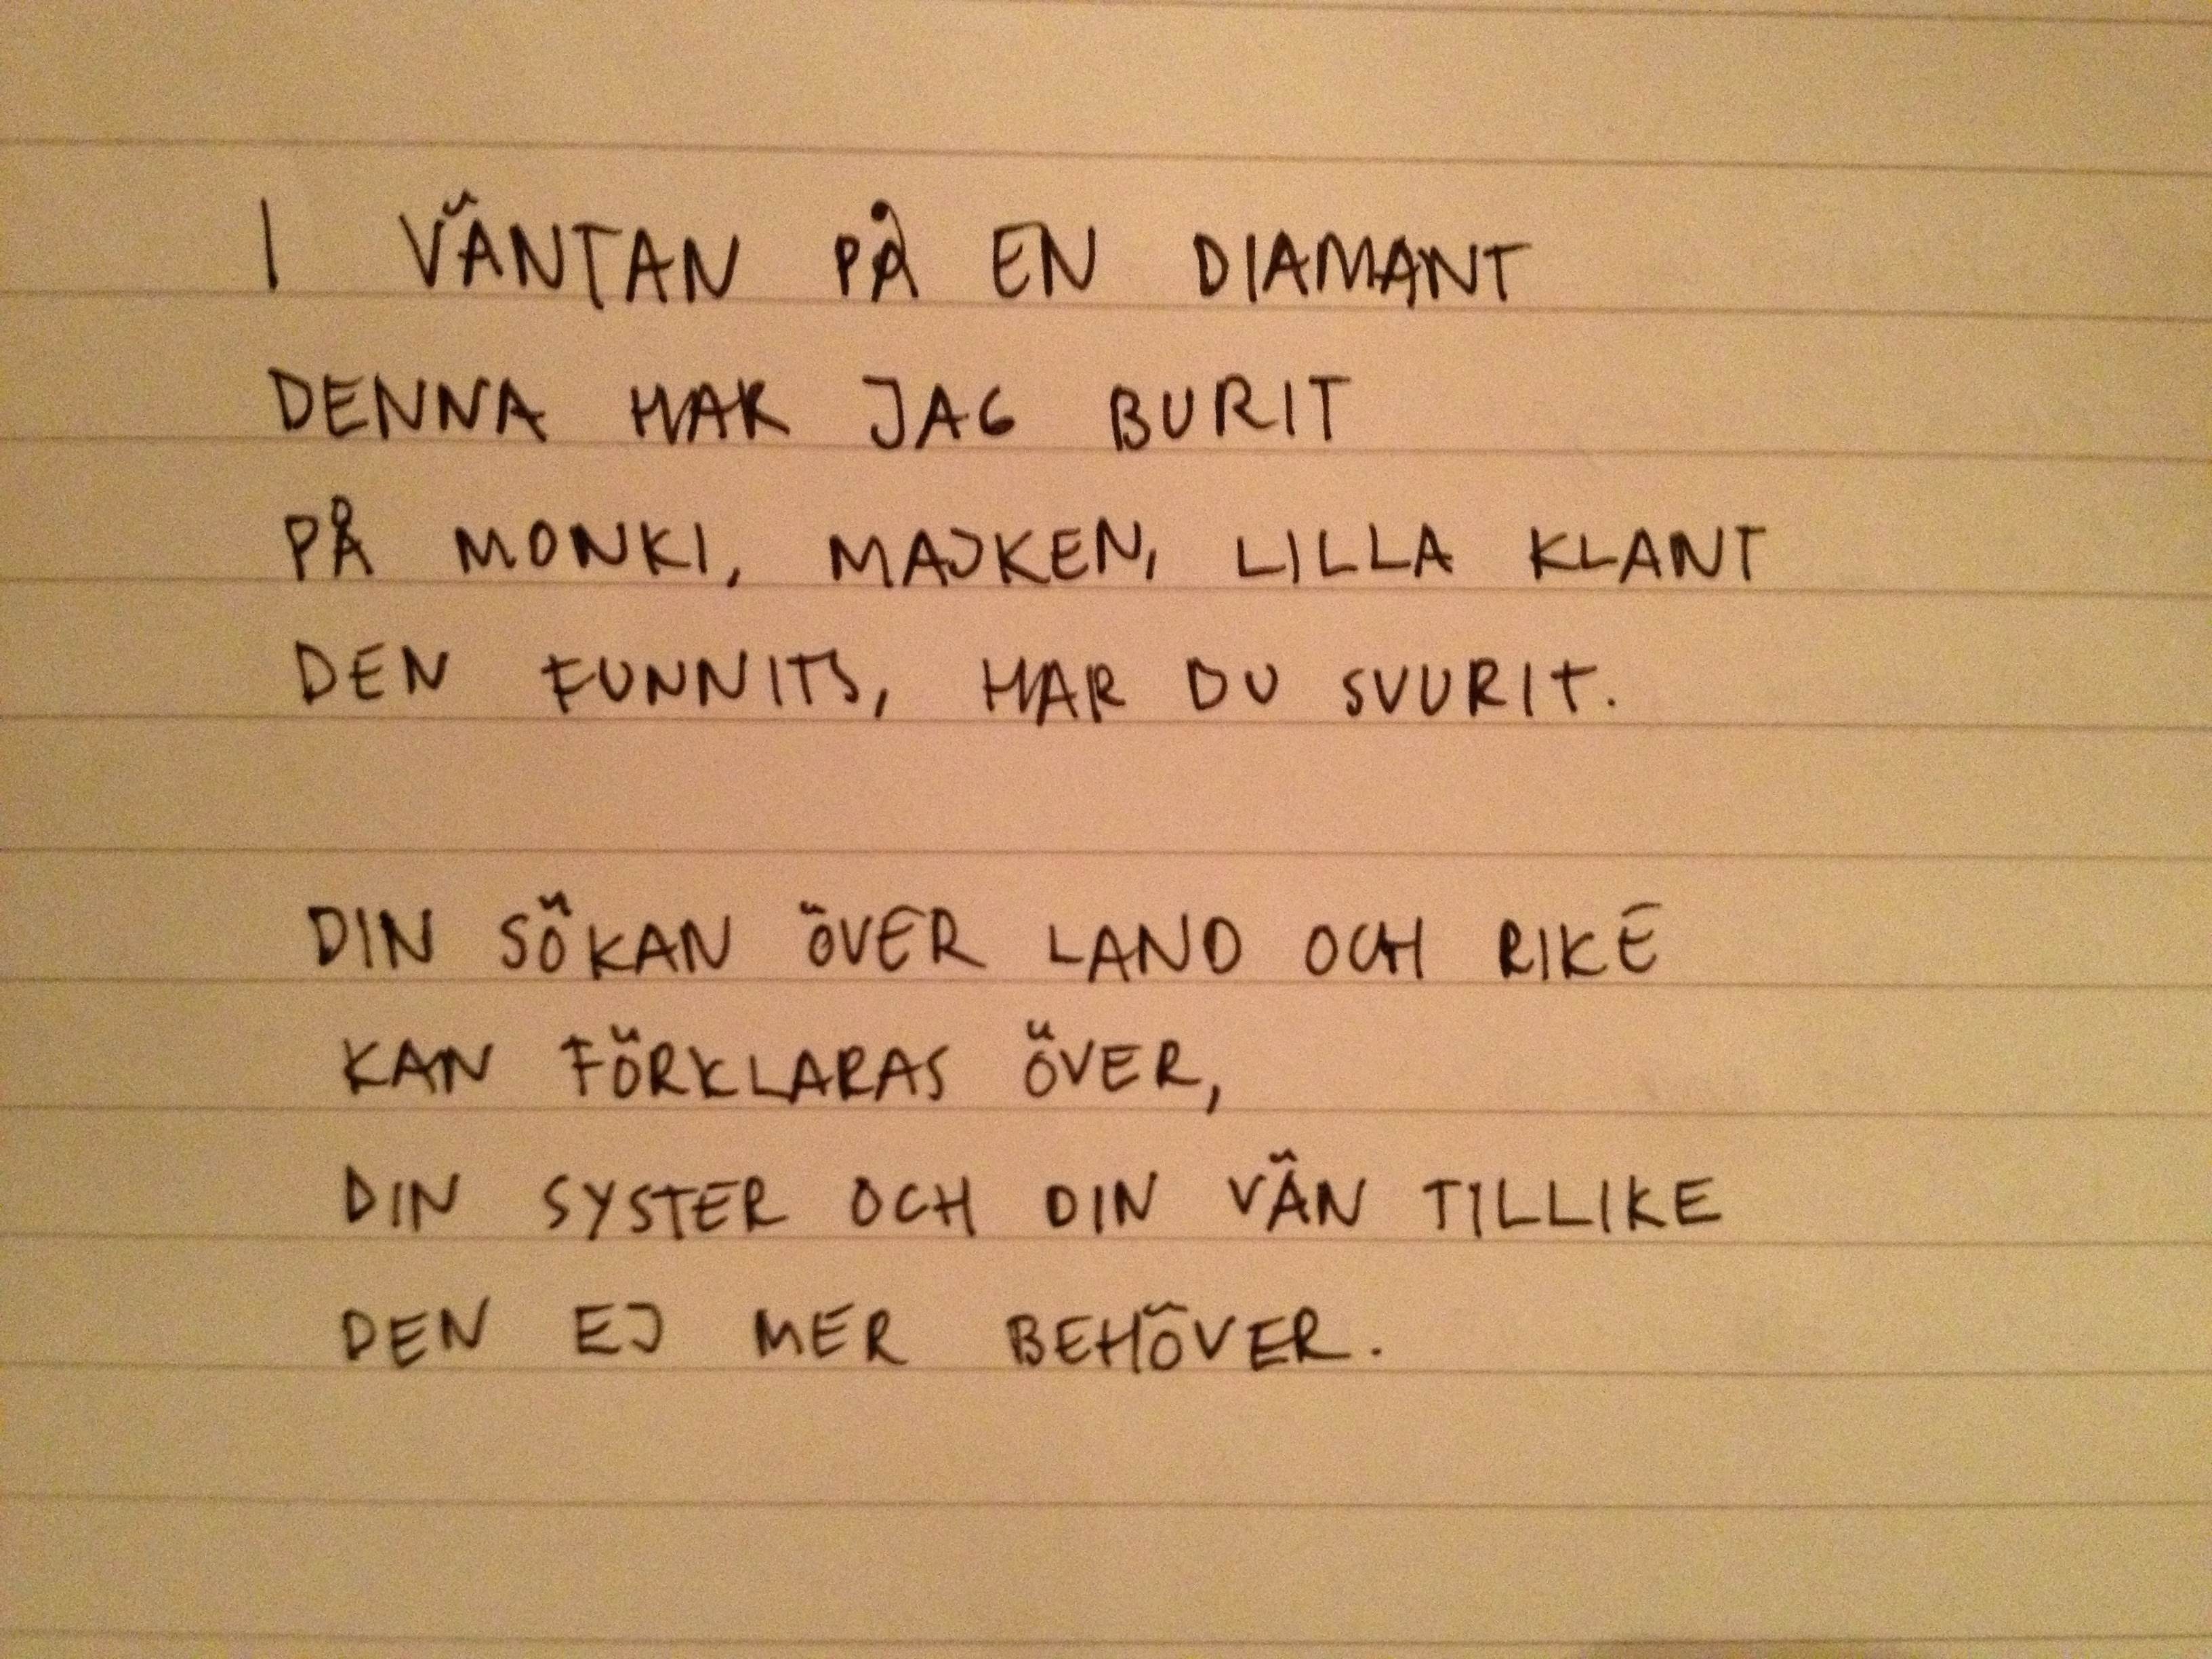 I VÄNTAN PÅ EN DIAMANT
DENNA HAR JAG BURIT
PÅ MONKI, MAJKEN, LILLA KLANT
DEN FUNNITS, HAR DU SVURIT.
DIN SÖKAN ÖVER LAND OCH RIKE
KAN FÖRKLARAS ÖVER,
DIN SYSTER OCH DIN VÄN TILLIKE
DEN EJ MER BEHÖVER.